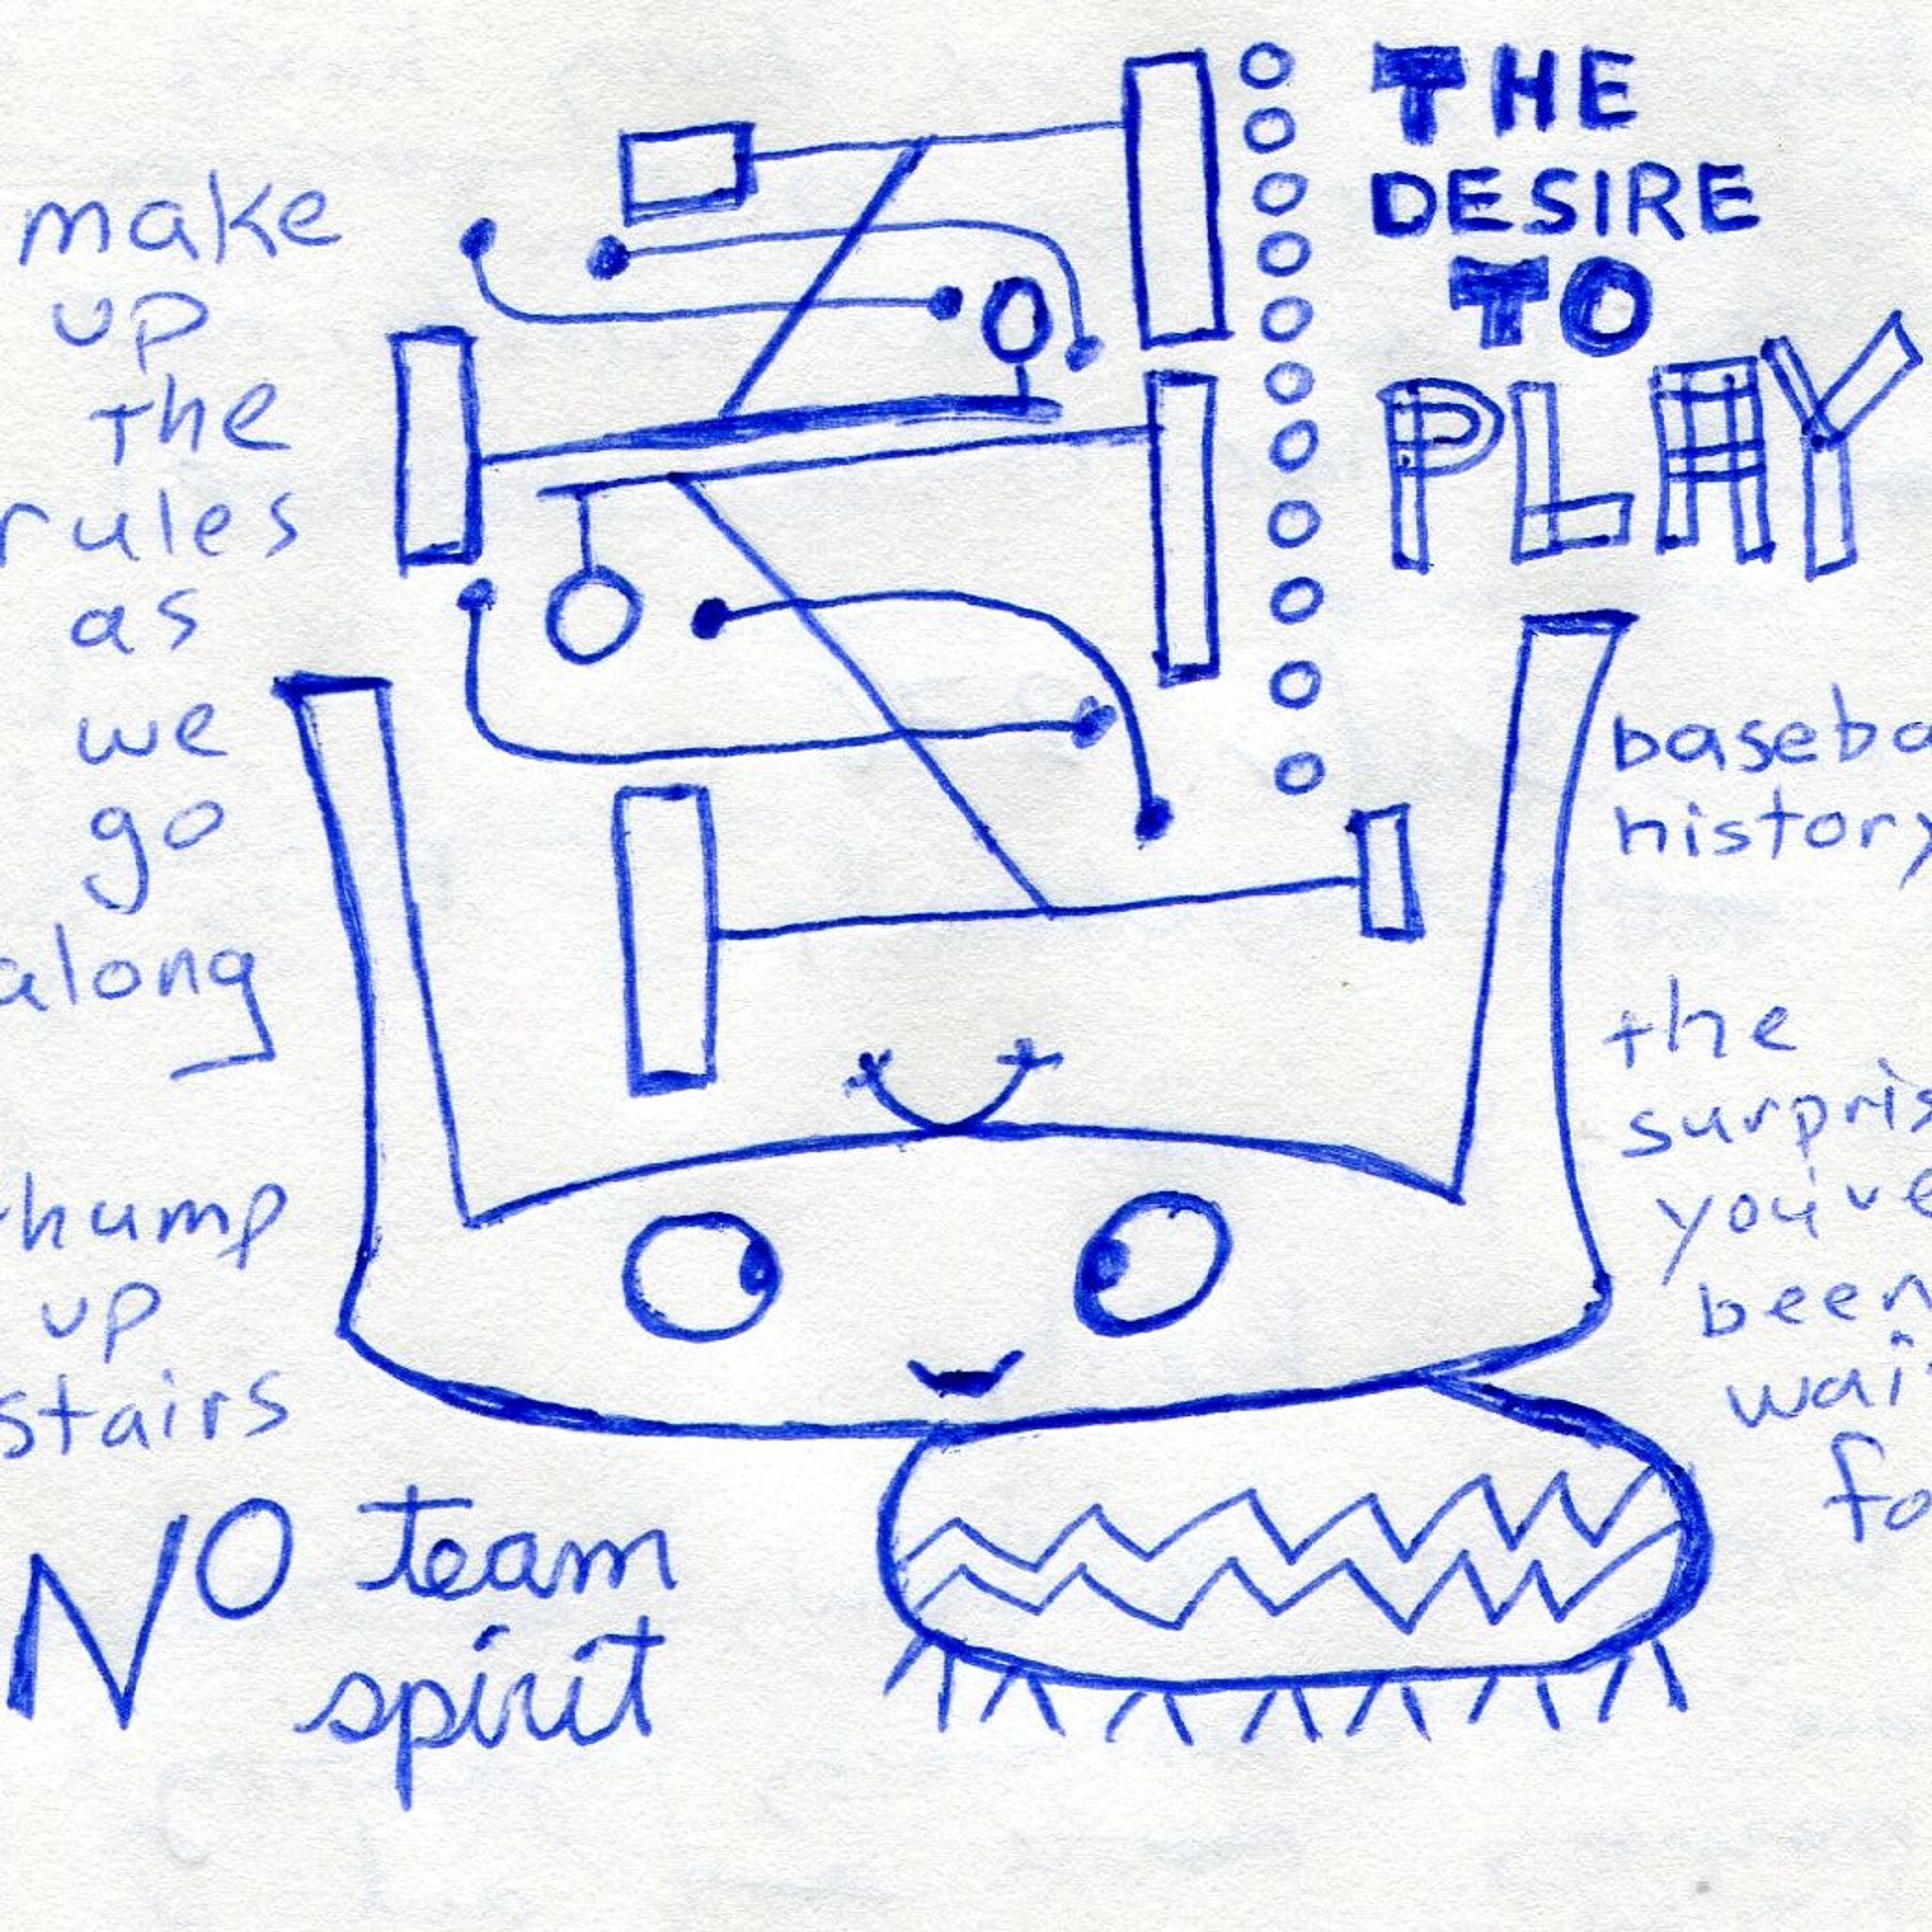 THE
DESIRE
TO
PLAY
make
up
the
rules
as
we
go
along
hump
up
stairs
NO team
spirit
baseba
history
the
surpris
you've
been
wai
fo